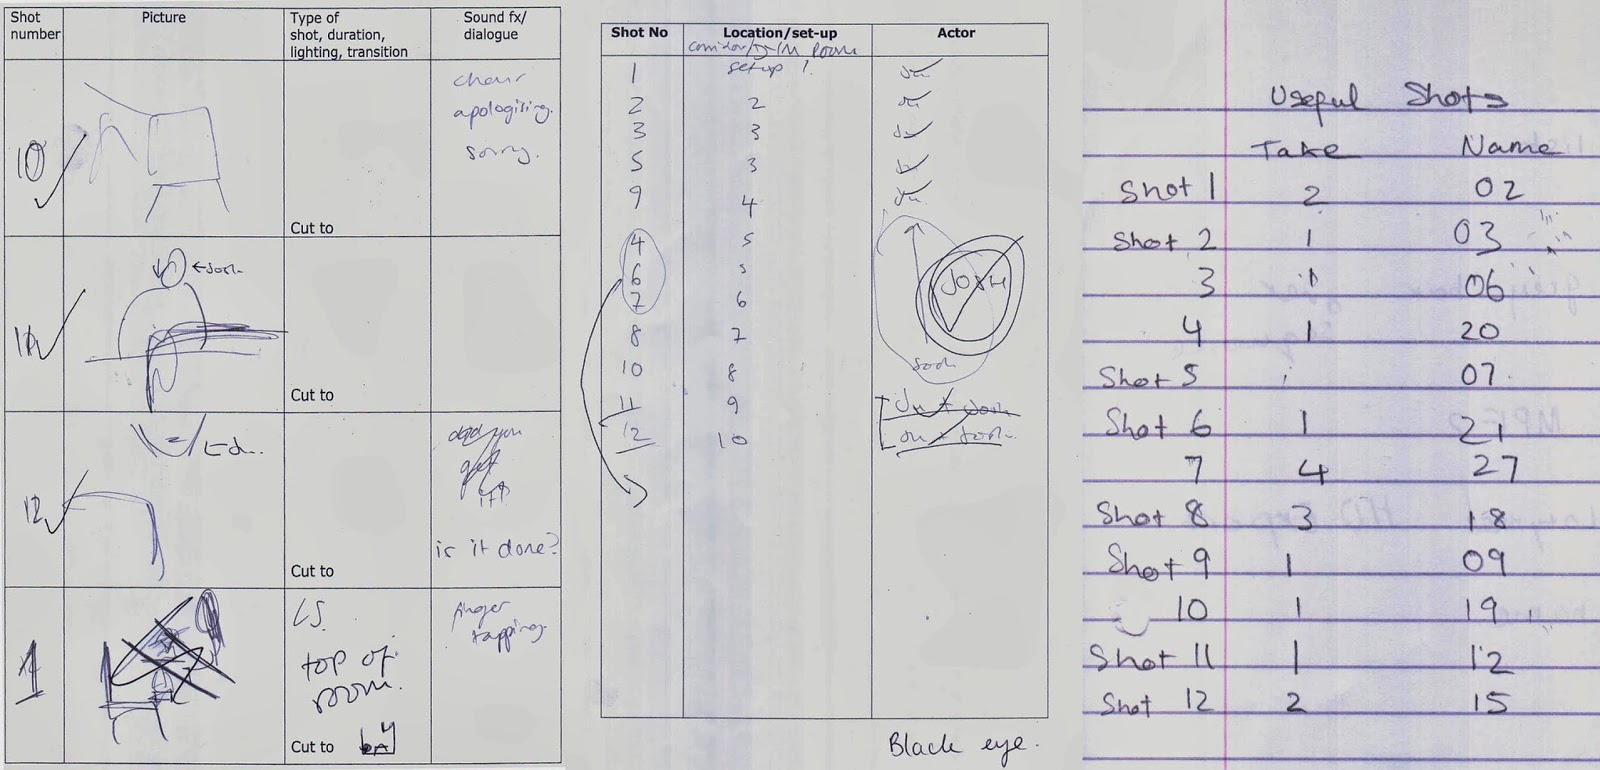 Shot number
Picture
Type of shot, duration, lighting, transition
Sound fx/ dialogue
10
chair
apologising.
sorry.
Cut to
11
Josh
Cut to
12
did you
get
it?
is it done?
Cut to
1
LS.
top of
room.
finger
tapping.
Cut to
Shot No
Location/set-up
Actor
1 set up 1.
2 2
3 3
5 3
9 4
4 5
6 5
7 6
8 7
10 8
11 9
12 10
JOSH
Josh
Black eye.
Useful Shots
Take Name
Shot 1 2 02
Shot 2 1 03
3 1 06
4 1 20
Shot 5 07
Shot 6 1 21
7 4 27
Shot 8 3 18
Shot 9 1 09
10 1 19
Shot 11 1 12
Shot 12 2 15